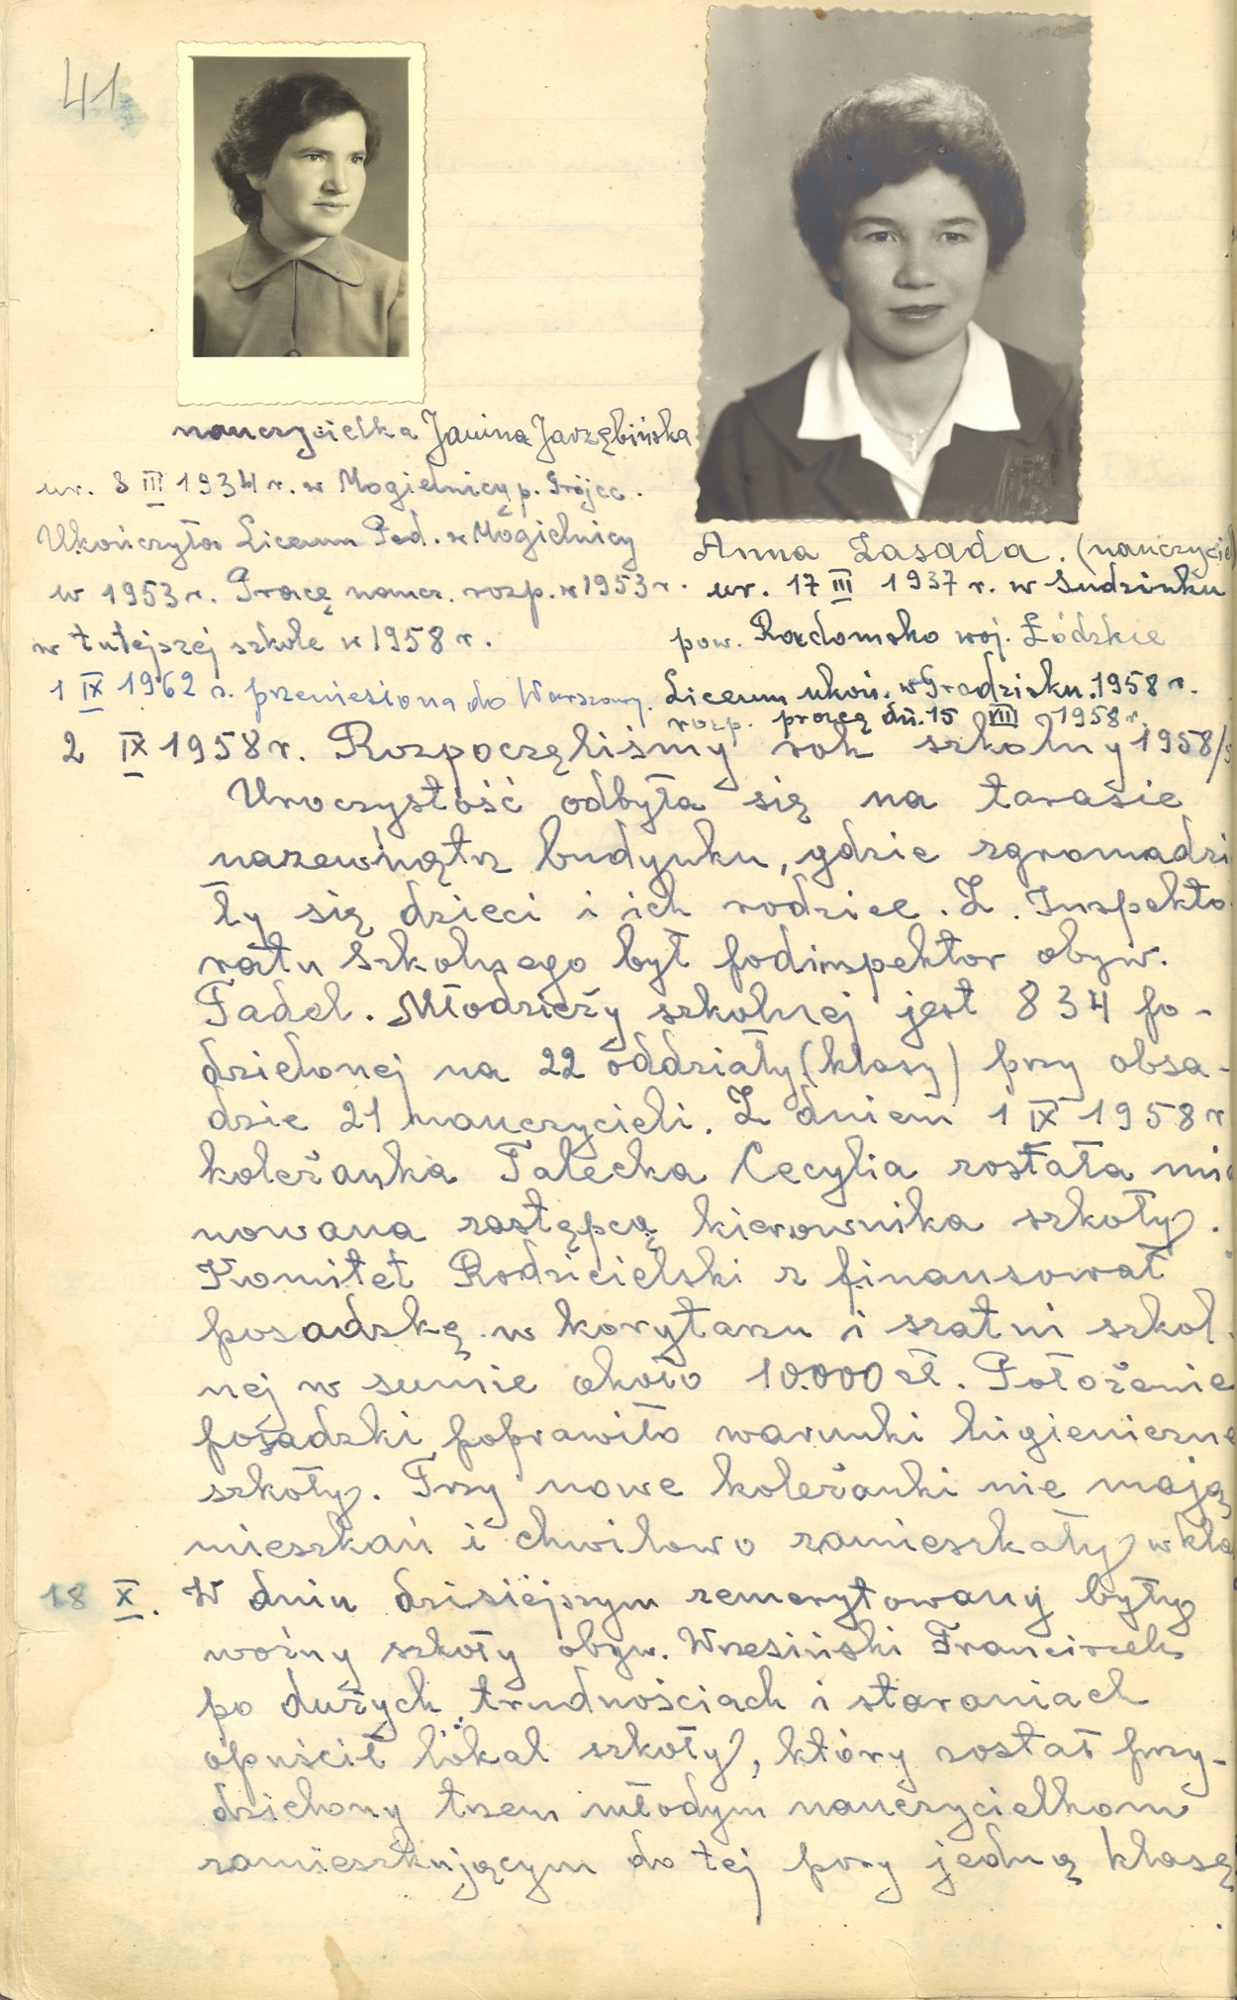 41
nauczycielka Janina Jarzębińska
ur. 8 III 1934 r. w Mogielnicy p. Grójec.
Ukończyła Liceum Ped. w Mogielnicy
w 1953 r. Pracę naucz. rozp. w 1953 r.
w tutejszej szkole w 1958 r.
1 IX 1962 r. przeniesiona do Warszawy.
Anna Zasada. (nauczyciel
ur. 17 III 1937 r. w Sudzinku
pow. Radomsko woj. Łódzkie
Liceum ukoń. w Grodzisku. 1958 r.
rozp. pracę dn. 15 VIII 1958 r.
2 IX 1958 r. Rozpoczęliśmy rok szkolny 1958/5
Uroczystość odbyła się na tarasie
nazewnątrz budynku, gdzie zgromadzi
ły się dzieci i ich rodzice. Z. Inspekto
ratu Szkolnego był podinspektor obyw.
Fadel. Młodzieży szkolnej jest 834 po-
dzielonej na 22 oddziały (klasy) przy obsa-
dzie 21 nauczycieli. Z dniem 1 IX 1958 r
koleżanka Falecka Cecylia została mia
nowana zastępcą kierownika szkoły.
Komitet Rodzicielski z finansował
posadzkę w korytarzu i szatni szkol
nej w sumie około 10.000 zł. Położenie
posadzki poprawiło warunki higieniczne
szkoły. Trzy nowe koleżanki nie mają
mieszkań i chwilowo zamieszkały w kla
18 X. W dniu dzisiejszym zemerytowany były
woźny szkoły obyw. Wrzesiński Franciszek
po dużych trudnościach i staraniach
opuścił lokal szkoły, który został przy-
dzielony trzem młodym nauczycielkom
zamieszkującym do tej pory jedną klasę